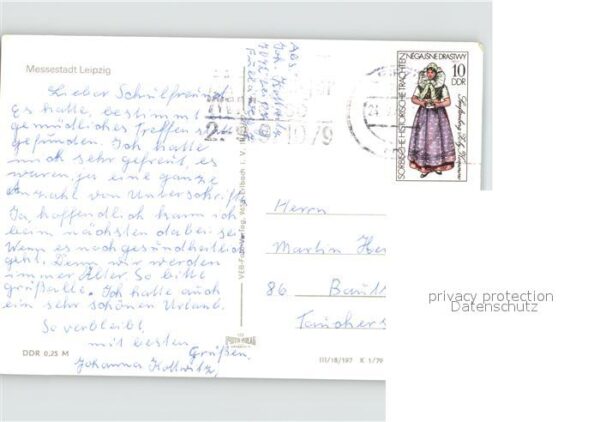 Messestadt Leipzig
Lieber Schulfreund
Es hatte, bestimmt
gemüdliches Treffen statt
gefunden. Ich hatte
mich sehr gefreut, es
waren ja eine ganze
Anzahl von Unterschrift
Ja, hoffendlich kann ich
beim nächsten dabei sei
Wenn es noch gesundheitlich
geht. Denn wir werden
immer Älter So bitte
grüßalle. Ich hatte auch
ein sehr schönen Urlaub.
So verbleibt
mit besten
Grüßen
Johanna Kollwitz,
DDR 0,25 M
VEB Foto-Verlag
III/18/197 K 1/79
1979
SORBISCHE HISTORISCHE TRACHTEN
NĚGAJŠNE DRASTWY
10
DDR
Herrn
Martin He
86 Baut
Taucher
privacy protection
Datenschutz